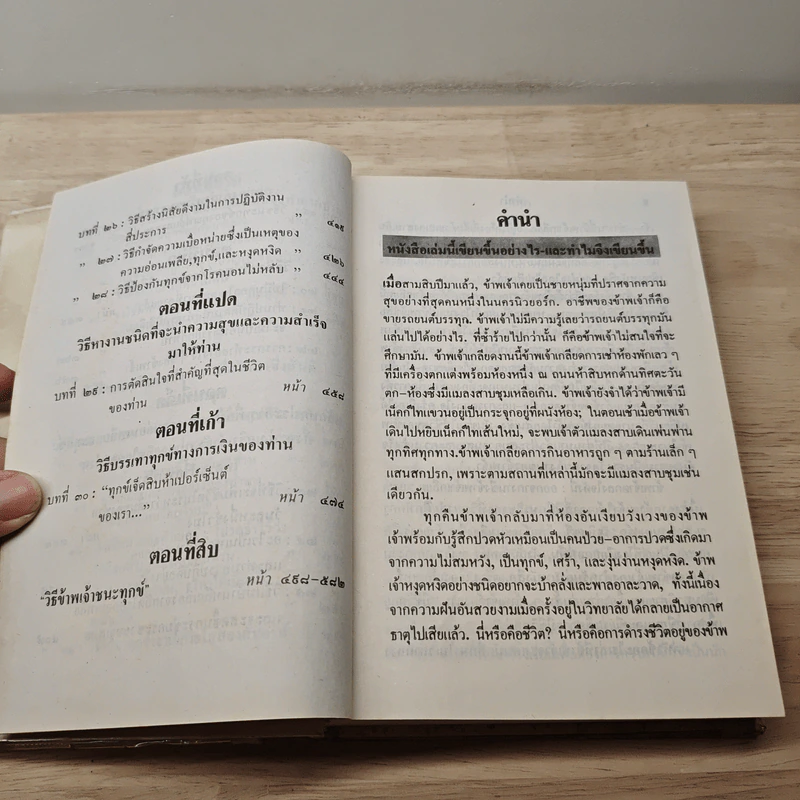 บทที่ ๒๖ : วิธีสร้างนิสัยดีงามในการปฏิบัติงาน
สี่ประการ ” ๔๑๙
” ๒๗ : วิธีกำจัดความเบื่อหน่ายซึ่งเป็นเหตุของ
ความอ่อนเพลีย,ทุกข์,และหงุดหงิด ” ๔๒๖
” ๒๘ : วิธีป้องกันทุกข์จากโรคนอนไม่หลับ ” ๔๔๔
ตอนที่แปด
วิธีหางานชนิดที่จะนำความสุขและความสำเร็จ
มาให้ท่าน
บทที่ ๒๙ : การตัดสินใจที่สำคัญที่สุดในชีวิต
ของท่าน หน้า ๔๕๘
ตอนที่เก้า
วิธีบรรเทาทุกข์ทางการเงินของท่าน
บทที่ ๓๐ : “ทุกข์เจ็ดสิบห้าเปอร์เซ็นต์
ของเรา...” หน้า ๔๗๔
ตอนที่สิบ
“วิธีข้าพเจ้าชนะทุกข์” หน้า ๔๙๘–๕๘๒
คำนำ
หนังสือเล่มนี้เขียนขึ้นอย่างไร-และทำไมจึงเขียนขึ้น
เมื่อสามสิบปีมาแล้ว, ข้าพเจ้าเคยเป็นชายหนุ่มที่ปราศจากความ
สุขอย่างที่สุดคนหนึ่งในนครนิวยอร์ก. อาชีพของข้าพเจ้าก็คือ
ขายรถยนต์บรรทุก. ข้าพเจ้าไม่มีความรู้เลยว่ารถยนต์บรรทุกมัน
แล่นไปได้อย่างไร. ที่ซ้ำร้ายไปกว่านั้น ก็คือข้าพเจ้าไม่สนใจที่จะ
ศึกษามัน. ข้าพเจ้าเกลียดงานนี้ข้าพเจ้าเกลียดการเช่าห้องพักเลว ๆ
ที่มีเครื่องตกแต่งพร้อมห้องหนึ่ง ณ ถนนห้าสิบหกด้านทิศตะวัน
ตก–ห้องซึ่งมีแมลงสาบชุมเหลือเกิน. ข้าพเจ้ายังจำได้ว่าข้าพเจ้ามี
เน็คก์ไทแขวนอยู่เป็นกระจุกอยู่ที่ผนังห้อง; ในตอนเช้าเมื่อข้าพเจ้า
เดินไปหยิบเน็คก์ไทเส้นใหม่, จะพบเจ้าตัวแมลงสาบเดินเพ่นพ่าน
ทุกทิศทุกทาง.ข้าพเจ้าเกลียดการกินอาหารถูก ๆ ตามร้านเล็ก ๆ
แสนสกปรก, เพราะตามสถานที่เหล่านี้มักจะมีแมลงสาบชุมเช่น
เดียวกัน.
ทุกคืนข้าพเจ้ากลับมาที่ห้องอันเงียบวังเวงของข้าพ
เจ้าพร้อมกับรู้สึกปวดหัวเหมือนเป็นคนป่วย–อาการปวดซึ่งเกิดมา
จากความไม่สมหวัง, เป็นทุกข์, เศร้า, และงุ่นง่านหงุดหงิด. ข้าพ
เจ้าหงุดหงิดอย่างชนิดอยากจะบ้าคลั่งและพาลอาละวาด, ทั้งนี้เนื่อง
จากความฝันอันสวยงามเมื่อครั้งอยู่ในวิทยาลัยได้กลายเป็นอากาศ
ธาตุไปเสียแล้ว. นี่หรือคือชีวิต? นี่หรือคือการดำรงชีวิตอยู่ของข้าพ